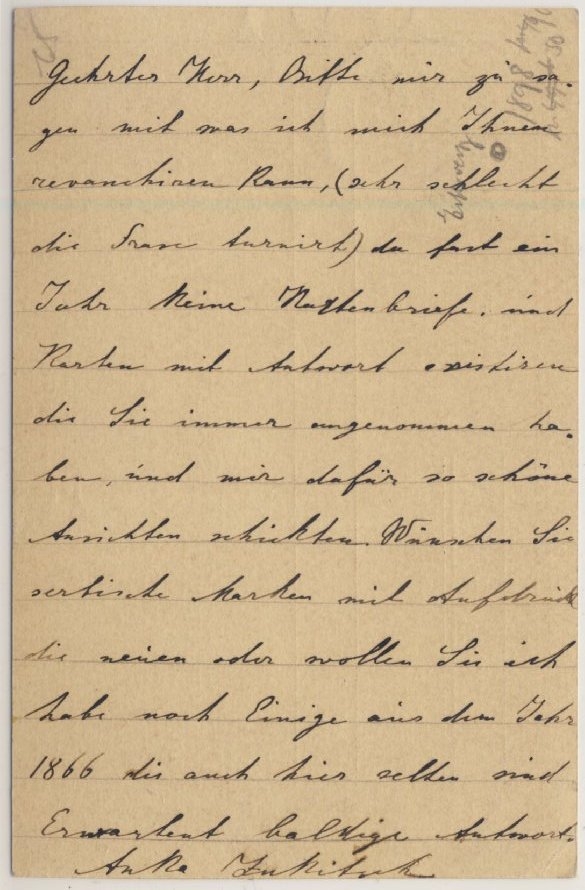 Geehrter Herr, Bitte mir zu sa-
gen mit was ich mich Ihnen
revanchiren kann, (sehr schlecht
die Frase turnirt) da fast ein
Jahr keine Kartenbriefe. und
Karten mit Antwort existiren
die Sie immer angenommen ha-
ben, und mir dafür so schöne
Ansichten schickten. Wünschen Sie
serbische Marken mit Aufdruck
die neuen oder wollen Sie ich
habe noch Einige aus dem Jahr
1866 die auch hier selten sind
Erwartent baldige Antwort
Anka